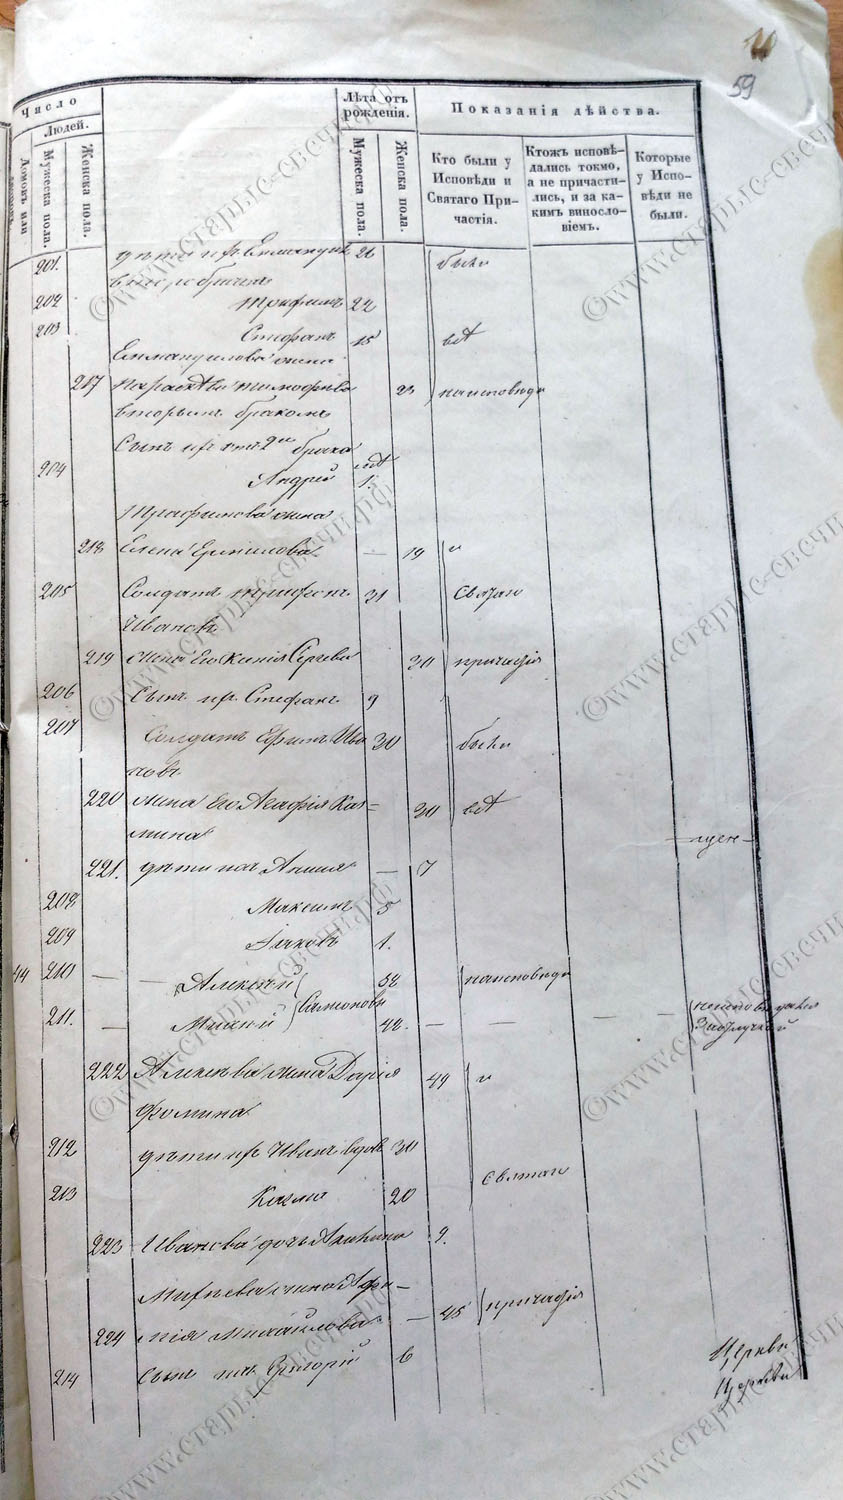 59
Число
Людей.
Домовъ или
Мужеска пола.
Женска пола.
Лѣта отъ рожденія.
Мужеска пола.
Женска пола.
Показанія дѣйства.
Кто были у Исповѣди и Святаго Причастія.
Ктожъ исповѣдались токмо, а не причастились, и за какимъ винословіемъ.
Которые у Исповѣди не были.
201. дѣти ихъ Еммануилъ 26 были
202 Трифилъ 22
203 Стефанъ 15 всѣ
Еммануилова жена
217 Параскева Тимофѣева 23 на исповѣди
вторымъ бракомъ
Сынъ ихъ 2 брака
204 Андрей 1.
жена
218 Елена Ермилова — 19 и
205 Солдатъ 31 Святаго
Ивановъ
219 жена Его Ксенія Сергѣева 30 причастія
206 Сынъ ихъ Стефанъ 9
207 Солдатъ Ефимъ Ива 30 были
новъ
220 жена Его Агафія Коз= 30 всѣ
мина
221. дѣти ихъ Анна — 7
208 Максимъ 5
209 Іаковъ 1.
44 210 — Алексѣй 52 на исповѣди
211. — 42. — — — —
222 Алексѣева жена Дарія 49 и
Фомина
212 дѣти ихъ Иванъ вдовъ 30
Святаго
213 20
223 Иванова дочь 9.
жена
224 нія Михайлова — 45 причастія
214 сынъ ихъ Григорій 6
Церкви
Церкви
©www.старые-свечи.рф